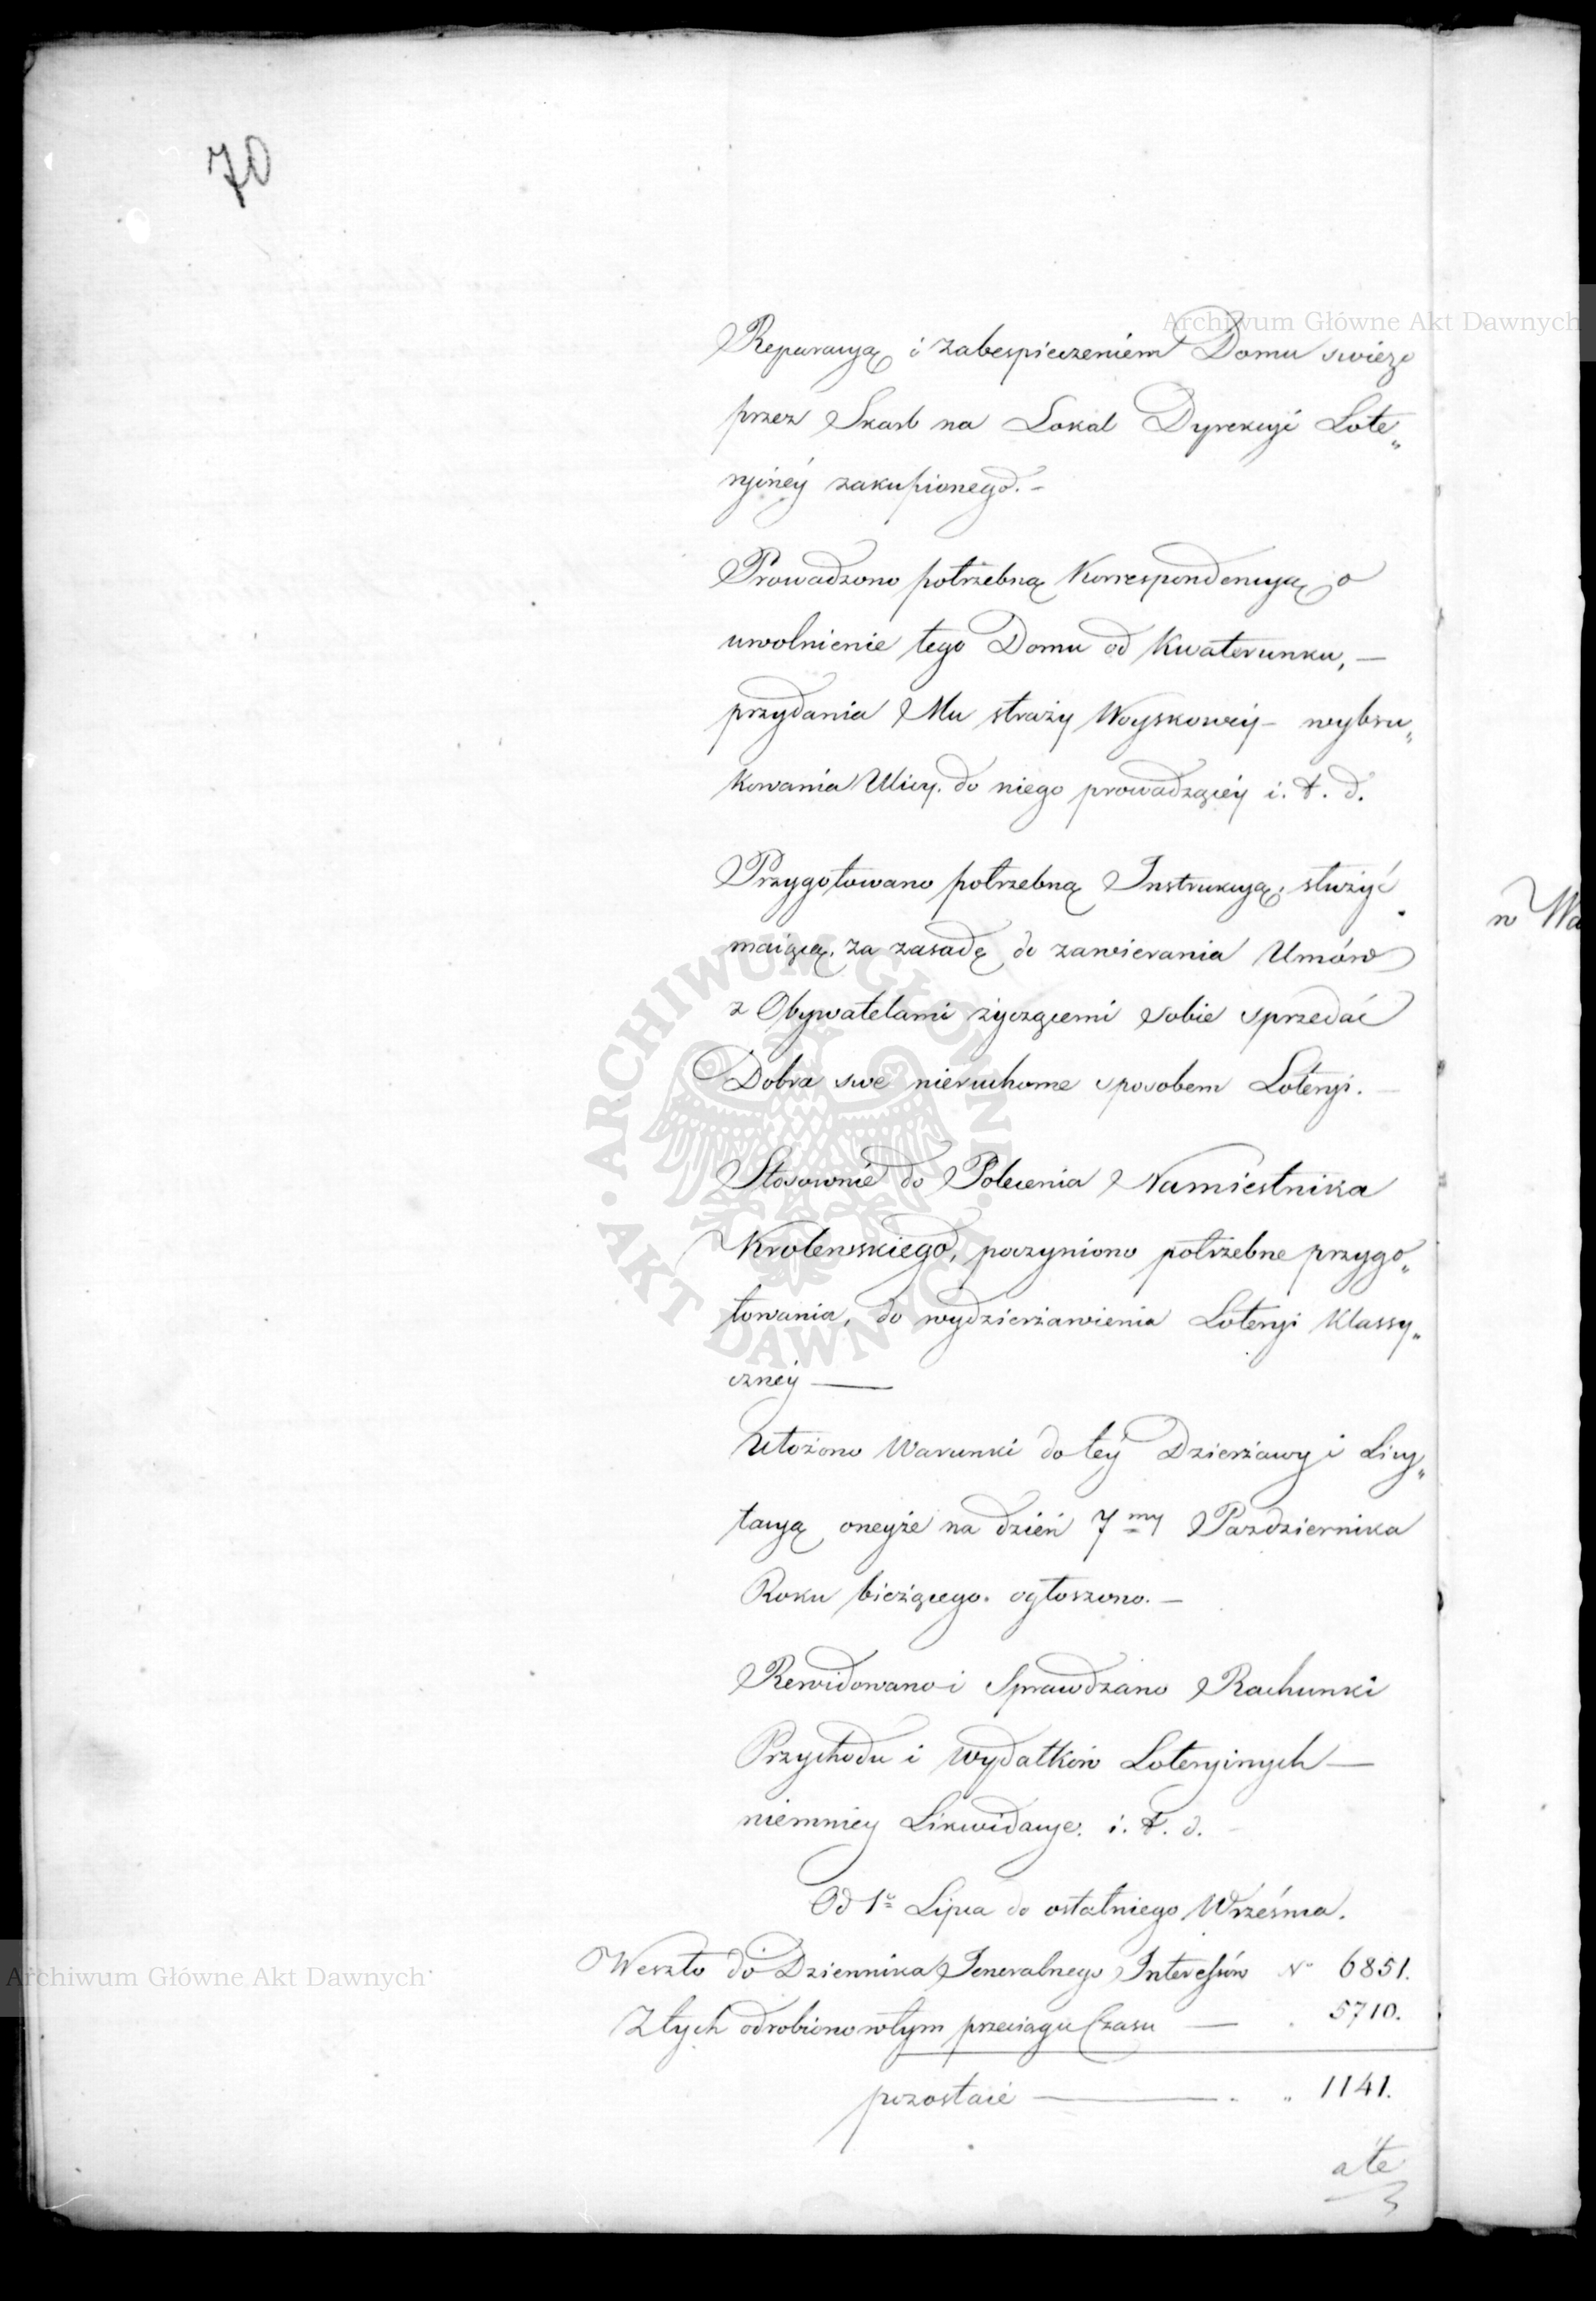 70
Archiwum Główne Akt Dawnych
Reparacyą i zabespieczeniem Domu swiezo
przez Skarb na Lokal Dyrekcyi Lote„
ryiney zakupionego. –
Prowadzono potrzebną Korrespondencyą o
uwolnienie tego Domu od Kwaterunku, —
przydania Mu straży Woyskowéy – wybru„
kowania Ulicy. do niego prowadzącéy i. t. d.
Przygotowano potrzebną Instrukcyą, służyć
maiącą, za zasadę do zawierania Umów
z Obywatelami życzącemi sobie sprzedać
Dobra swe nieruchome sposobem Loteryi. –
Stosownie do Polecenia Namiestnika
Krolewskiego, poczyniono potrzebne przygo„
towania, do wydzierżawienia Loteryi Klassy„
cznéy —
Ułożono Warunki do téy Dzierżawy i Licy„
tacyą oneyże na dzień 7my Pazdziernika
Roku bieżącego. ogłoszono. –
Rewidowano i Sprawdzano Rachunki
Przychodu i wydatków Loteryinych —
niemniey Likwidacye. i. t. d. –
Od 1o Lipca do ostatniego Września.
Weszło do Dziennika Jeneralnego Interessów No 6851.
Z tych odrobiono w tym przeciągu Czasu — . 5710.
pozostaie — . „ 1141.
a te
w Wa
Archiwum Główne Akt Dawnych
ARCHIWUM GŁÓWNE · AKT DAWNYCH ·